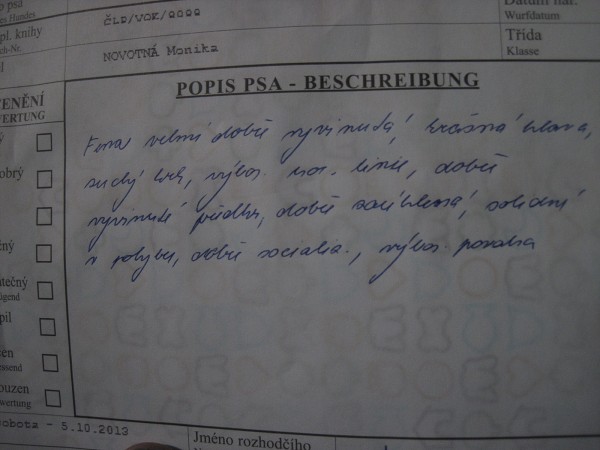 psa
es Hundes
ČLP/VOK/9999
Datum nar.
Wurfdatum
pl. knihy
ch-Nr.
NOVOTNÁ Monika
Třída
Klasse
POPIS PSA - BESCHREIBUNG
CENĚNÍ
WERTUNG
Fena velmi dobře vyvinutá, krásná hlava,
suchý krk, výbor. hor. linie, dobře
vyvinuté předhr., dobře zaúhlená, solidní
v pohybu, dobře socializ., výbor. povaha
obrý
čný
tečný
ügend
pil
čen
essend
ouzen
wertung
obota - 5.10.2013
Jméno rozhodčího